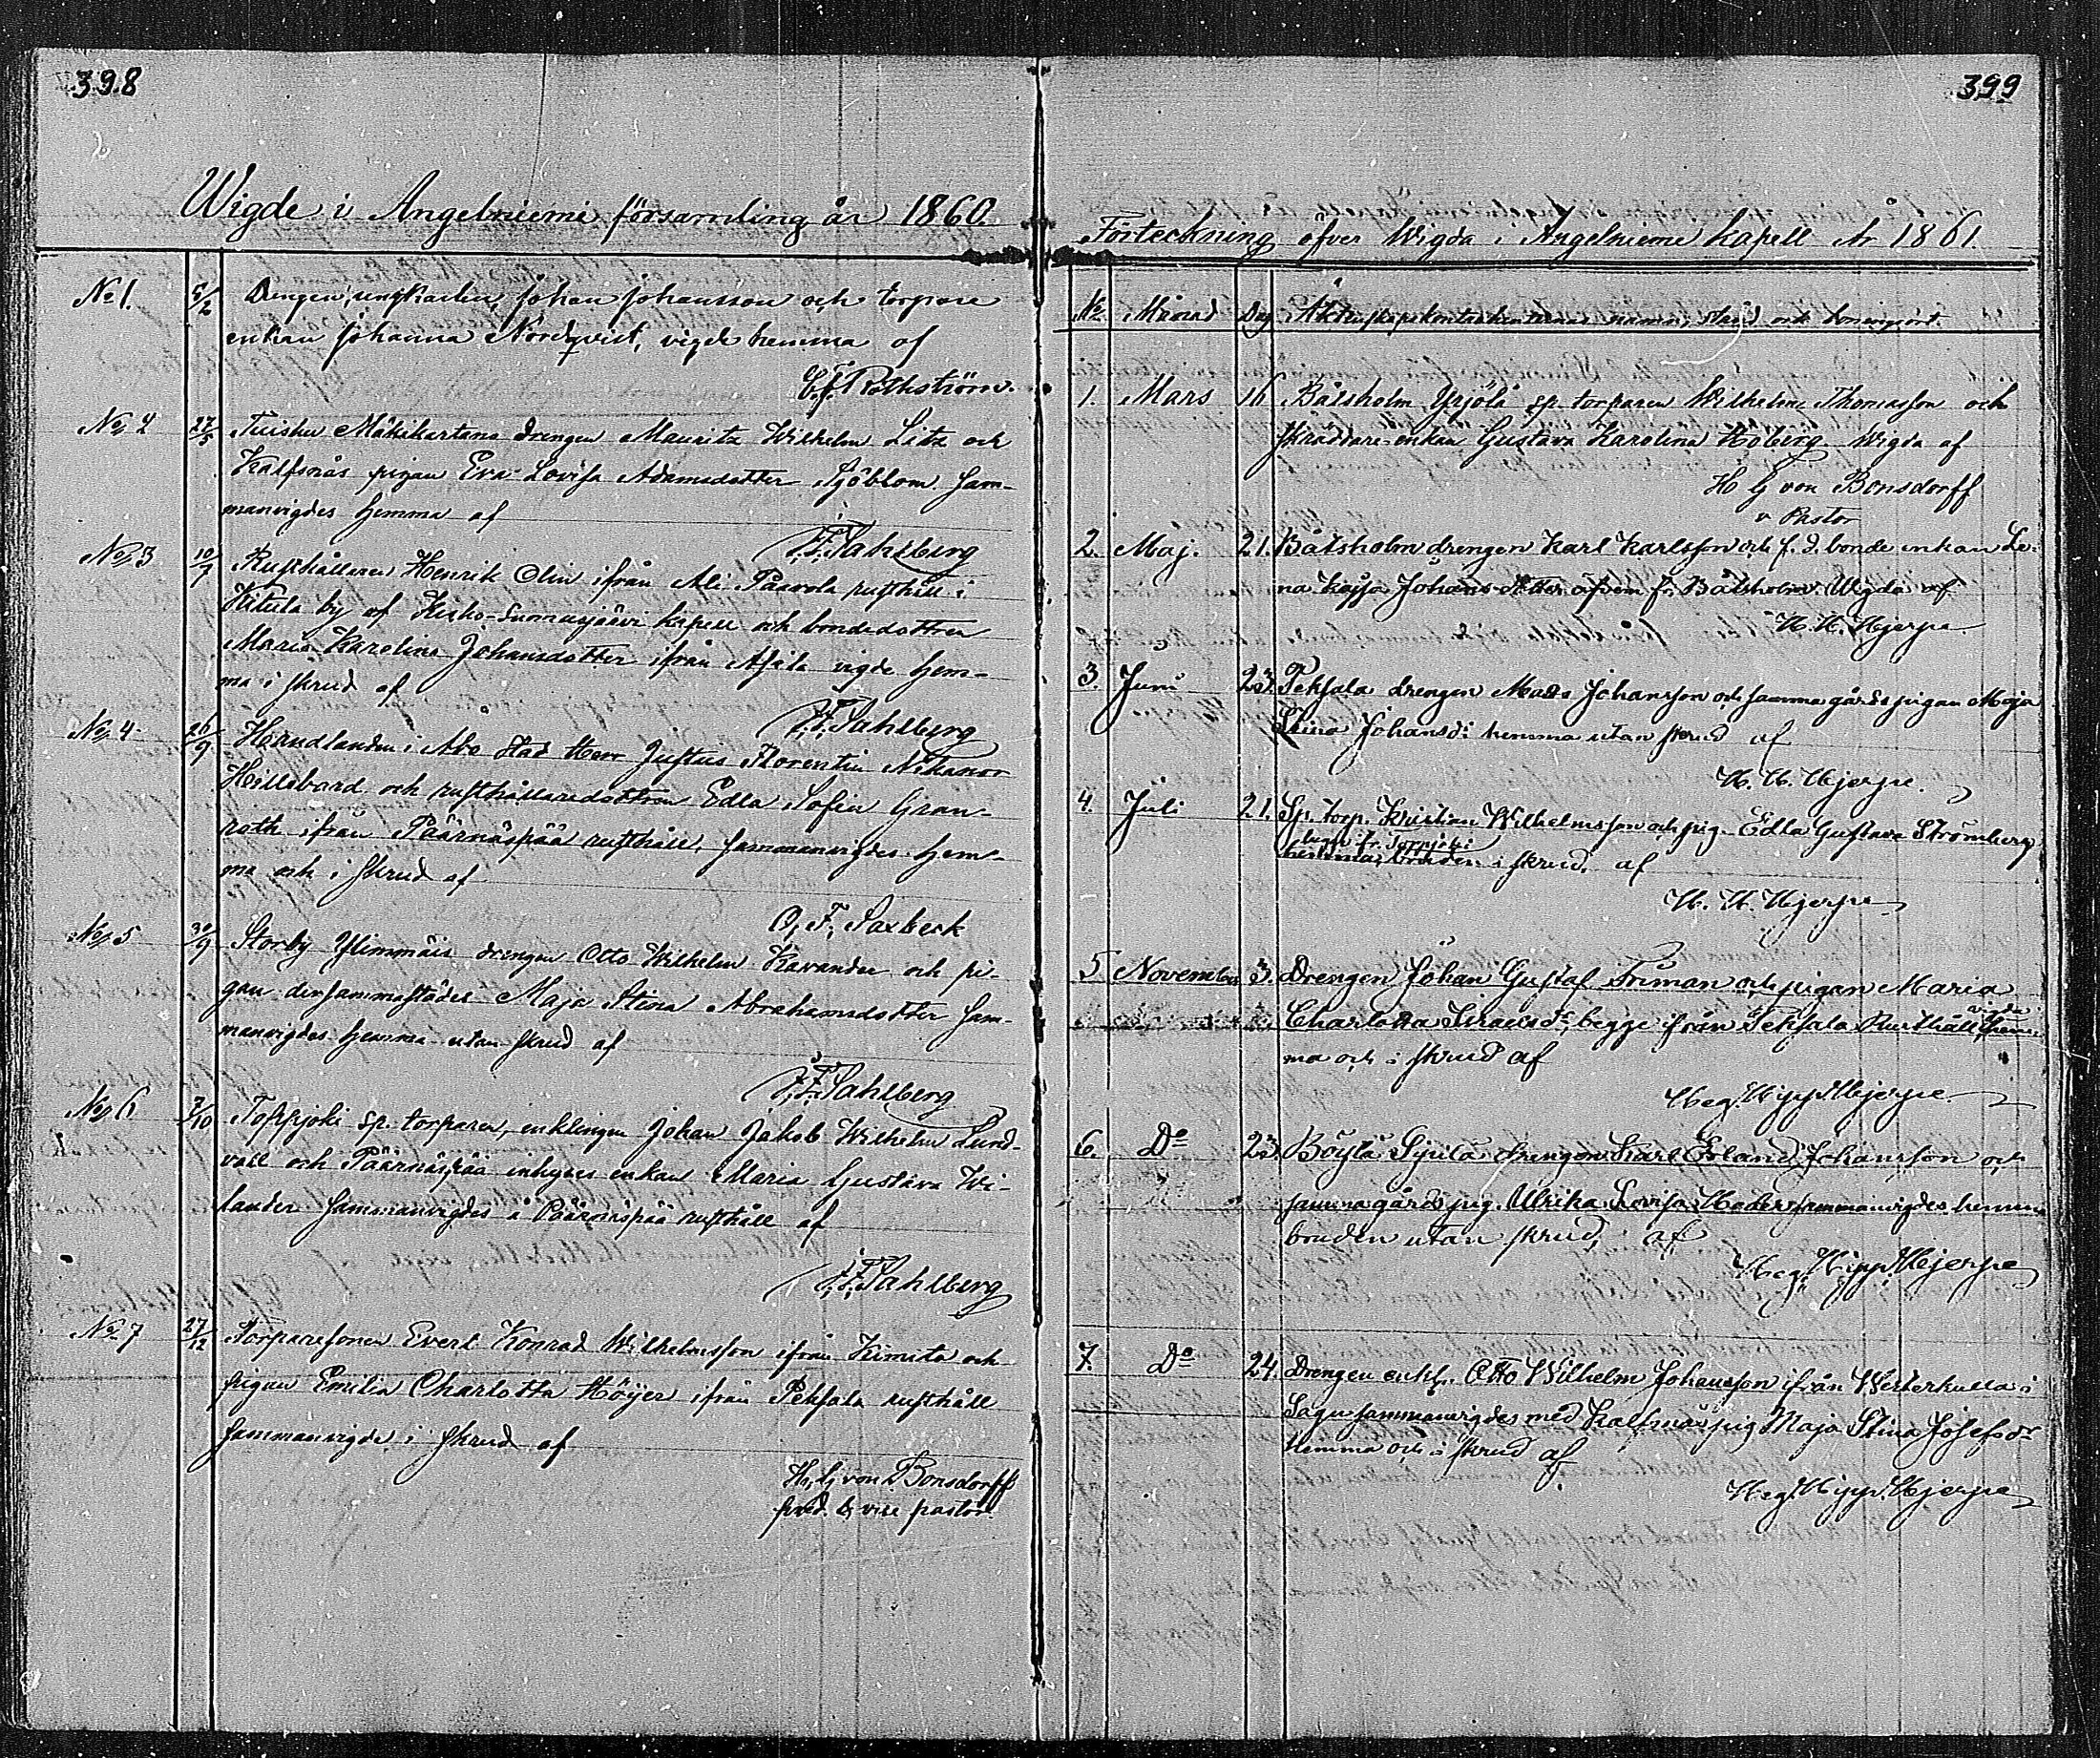 398
Wigde i Angelniemi församling år 1860.
No 1. 5/2 Drengen, ungkarlen Johan Johansson och torpare
enkan Johanna Nordqvist, vigde hemma af
C. J. Rothström.
No 2 27/5 Tuisku Mäkikartano drengen Mauritz Wilhelm Litz och
Kalfsnäs pigan Eva Lovisa Adamsdotter Sjöblom sam-
manvigdes hemma af
F. F. Sahlberg
No 3 10/7 Rusthållaren Henrik Olin ifrån Ali Påavola rusthåll i
Kitula by af Kisko-Suomusjärvi kapell och bondedottren
Maria Karolina Johansdotter ifrån Asila vigde hem-
ma i skrud af
F. F. Sahlberg
No 4 26/9 Handlanden i Åbo stad Herr Justus Florentin Nikanor
Hillebard och rusthållaredottren Edla Sofia Gran-
roth ifrån Päärnäspää rusthåll, sammanvigdes hem-
ma och i skrud af
O. F. Saxbeck
No 5 30/9 Storby Ylimmäis drengen Otto Wilhelm Kavander och pi-
gan dersammastädes Maja Stina Abrahamsdotter sam-
manvigdes hemma utan skrud af
F. F. Sahlberg
No 6 7/10 Toppjoki sp. torparen, enklingen Johan Jakob Wilhelm Lund-
vall och Päärnäspää inhyses enkan Maria Gustava Wi-
lander sammanvigdes å Päärnäspää rusthåll af
F. F. Sahlberg
No 7 27/12 Torparesonen Evert Konrad Wilhelmsson ifrån Kimito och
pigan Emilia Charlotta Höijer ifrån Peksala rusthåll
sammanvigde i skrud af
H. G. von Bonsdorff
pred. & vice pastor.
399
Förteckning öfver Wigda i Angelniemi kapell År 1861.
No Månad Dag Äktenskapskontrahenternas namn, stånd och boningsort.
1. Mars 16 Båtsholm Yrjölä sp. torparen Wilhelm Thomasson och
skräddare enkan Gustava Karolina Hoberg. Wigda af
H G von Bonsdorff
v. Pastor
2. Maj. 21. Båtsholm drengen Karl Karlsson och f. d. bonde enkan Le-
na Kajsa Johansdotter äfven fr. Båtsholm. Wigda af
H. H. Hjerpe.
3. Juni 23. Peksala drengen Mats Johansson och samma gårds pigan Maja
Stina Johansd: hemma utan skrud af
H. H. Hjerpe.
4. Juli 21. Sp. torp. Kristian Wilhelmsson och pig. Edla Gustava Strömberg
begge fr. Toppjoki
hemma, bruden i skrud, af
H. H. Hjerpe
5 November 3. Drengen Johan Gustaf Friman och pigan Maria
Charlotta Israelsdr begge ifrån Peksala Rusthåll, vigde hem-
ma och i skrud af
Heg. Hipp. Hjerpe.
6. Do 23. Böylä Syrilä drengen Karl Erland Johansson och
samma gårds pig. Ulrika Lovisa Heder sammanvigdes hemma
bruden utan skrud, af
Heg. Hipp. Hjerpe
7. Do 24. Drengen enkl. Otto Wilhelm Johansson ifrån Westerkulla i
Sagu sammanvigdes med Kalfnäs pig Maja Stina Josefsdr
hemma och i skrud af
Heg. Hipp. Hjerpe